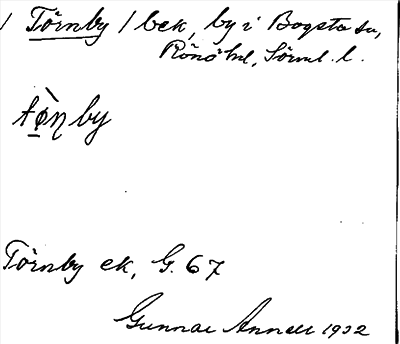 / Törnby / bek, by i Bogsta sn,
Rönö hd, Söderml. l.
tø̀ŋby
Törnby ek, G. 67
Gunnar Annell 1932